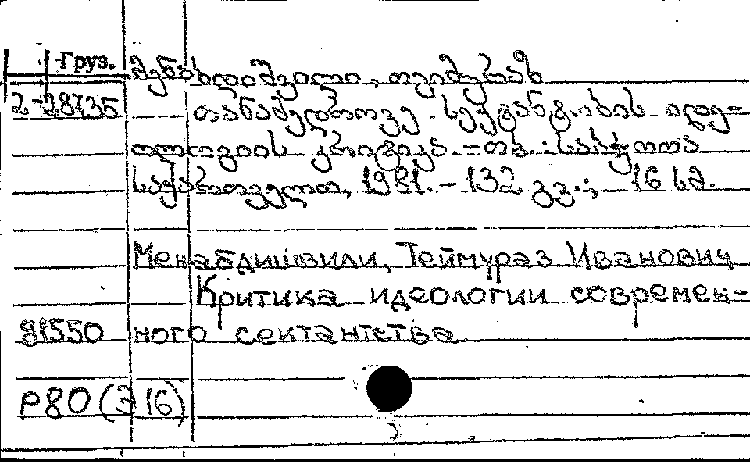 Груз. მენაბდიშვილი, თეიმურაზ
2-28735 თანამედროვე სექტანტობის იდე-
ოლოგიის კრიტიკა. - თბ.: საბჭოთა
საქართველო, 1981. - 132 გვ.; 16 სმ.
Менабдишвили, Теймураз Иванович
Критика идеологии современ-
81550 ного сектантства
Р80(Э16)